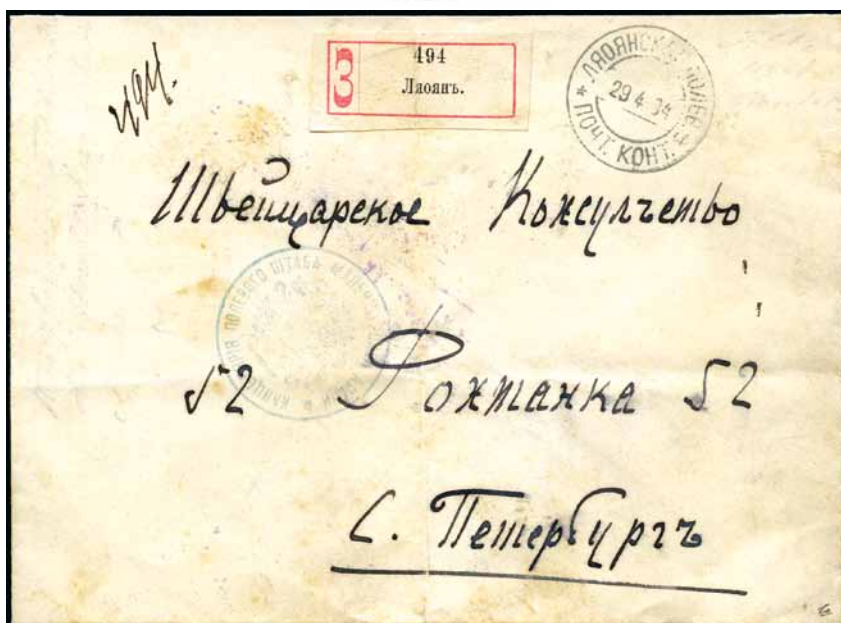 494.
З
494
Ляоянъ.
ЛЯОЯНСКАЯ ПОЛЕВ.
29 4 04
ПОЧТ. КОНТ.
Швейцарское Конжсулъство
КАНЦЕЛЯРІЯ ПОЛЕВОГО ШТАБА
52 Фохтанка 52
С. Петербургъ